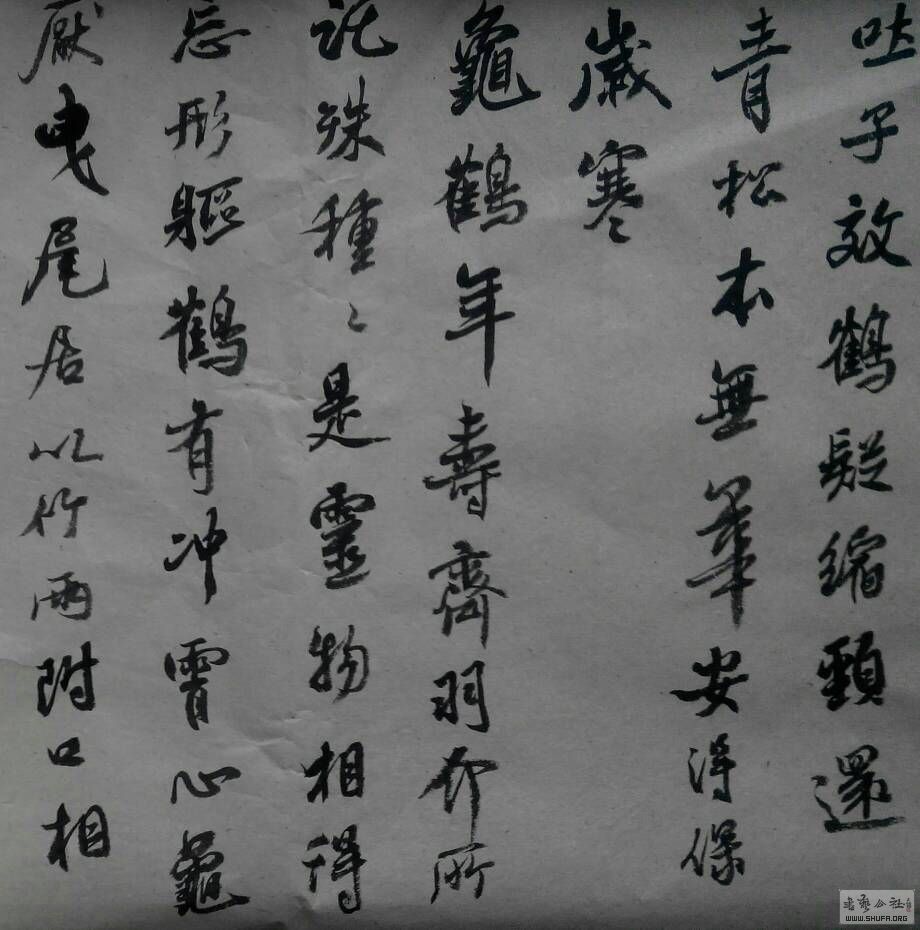 吐子效鶴疑縮頸還
青松本無華安得保
歲寒
龜鶴年壽齊羽介所
託殊種〻是靈物相得
忘形軀鶴有冲霄心龜
厭曳尾居以竹兩附口相
书艺公社
WWW.SHUFA.ORG